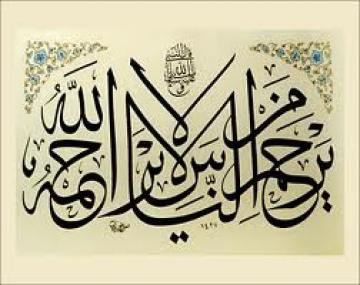 من لا يرحم الناس لا يرحمه الله
١٤٢٧